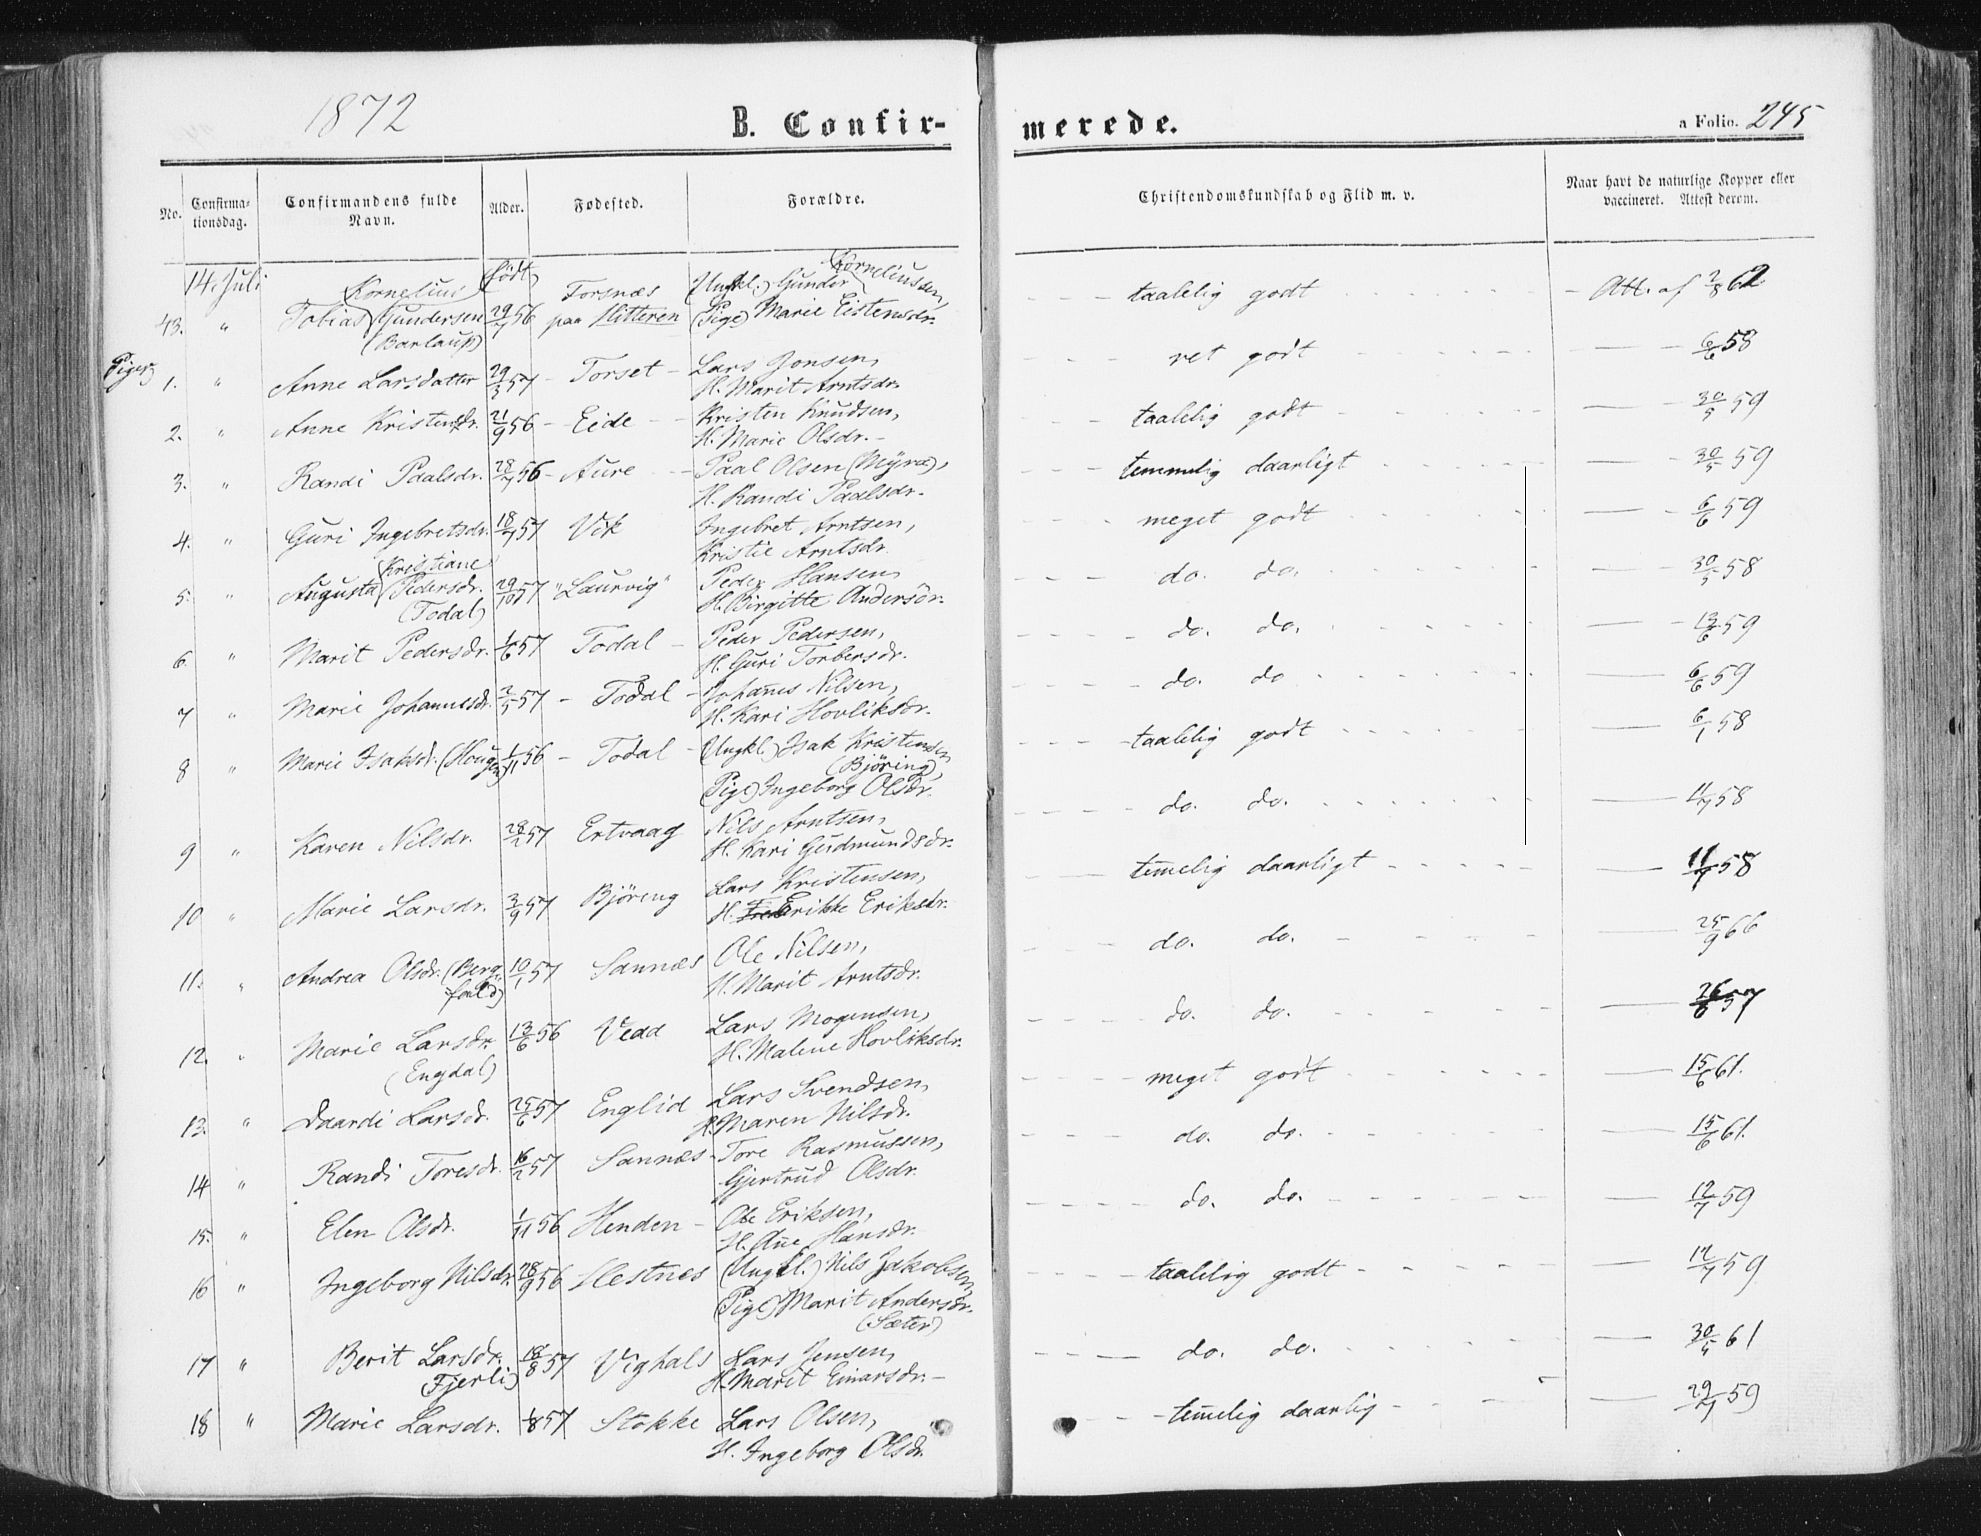 1872
B. Confir-
merede.
a Folio. 245
No.
Confirma-
tionsdag.
Confirmandens fulde
Navn.
Alder.
Fødested.
Forældre.
Christendomskundskab og Flid m. v.
Naar havt de naturlige Kopper eller
vaccineret. Attest derom.
14. Juli Kornelius født Torsnæs (Ungkl.) Gunder Korneliussen,
43. " Tobias Gundersen 29/7 56 paa Hitteren (Pige) Marie Eistensdr. taalelig godt Att. af 2/8 62
(Barlaup)
Piger
1. " Anne Larsdatter 29/3 57 Torset Lars Jonsen, ret godt 6/6 58
H. Marit Arntsdr.
2. " Anne Kristensdr. 21/9 56 Eide Kristen Knudsen, taalelig godt 30/5 59
H. Marie Olsdr.
3. " Randi Paalsdr. 28/7 56 Aure Paal Olsen (Myra), temmelig daarligt 30/5 59
H. Randi Paalsdr.
4. " Guri Ingebretsdr. 18/7 57 Vik Ingebret Arntsen, meget godt 6/6 59
Kristie Arntsdr.
Kristiane
5. " Augusta Pedersdr. 29/10 57 "Laurvig" Peder Hansen, do. do. 30/5 58
(Todal) H. Birgitte Andersdr.
6. " Marit Pedersdr. 1/6 57 Todal Peder Pedersen, do. do. 13/6 59
H. Guri Torbersdr.
7 " Marie Johannesdr. 2/5 57 Todal Johanes Nilsen, do. do 6/6 59
H. Kari Hovliksdr.
8 " Marie Isaksdr. (Hougen) 1/11 56 Todal (Ungkl.) Isak Kristensen taalelig godt 6/1 58
(Björing),
(Pige) Ingeborg Olsdr.
9 " Karen Nilsdr. 28/2 57 Ertvaag Nils Arntsen, do. do. 11/7 58
H. Kari Gudmundsdr.
10 " Marie Larsdr. 3/9 57 Björeng Lars Kristensen, temelig daarligt 11/7 58
H. Erikke Eriksdr.
11. " Andrea Olsdr. (Berg- 10/1 57 Sannæs Ole Nilsen, do. do. 25/9 66
fald) H. Marit Arntsdr.
12. " Marie Larsdr. 13/6 56 Vead Lars Mogensen, do. do. 26/8 57
(Engdal) H. Malene Hovliksdr.
13. " Daardi Larsdr. 25/6 57 Englid Lars Svendsen, meget godt 15/6 61.
H. Maren Nilsdr.
14 " Randi Toresdr. 16/2 57 Sannæs Tore Rasmussen, do. do. 15/6 61.
Gjertrud Olsdr.
15. " Elen Olsdr. 1/11 56 Henden Ole Eriksen, do. do. 12/7 59
H. Ane Hansdr.
16 " Ingeborg Nilsdr. 28/9 56 Hestnes (Ungkl.) Nils Jakobsen, taalelig godt 12/7 59
(Pige) Marit Andersdr.
(Sæter)
17 " Berit Larsdr. 18/8 57 Vighals Lars Jensen, do. do. 30/5 61
(Fjerli) H. Marit Einarsdr.
18 " Marie Larsdr. 1/8 57 Stokke Lars Olsen, temelig daarlig 29/7 59
H. Ingeborg Olsdr.